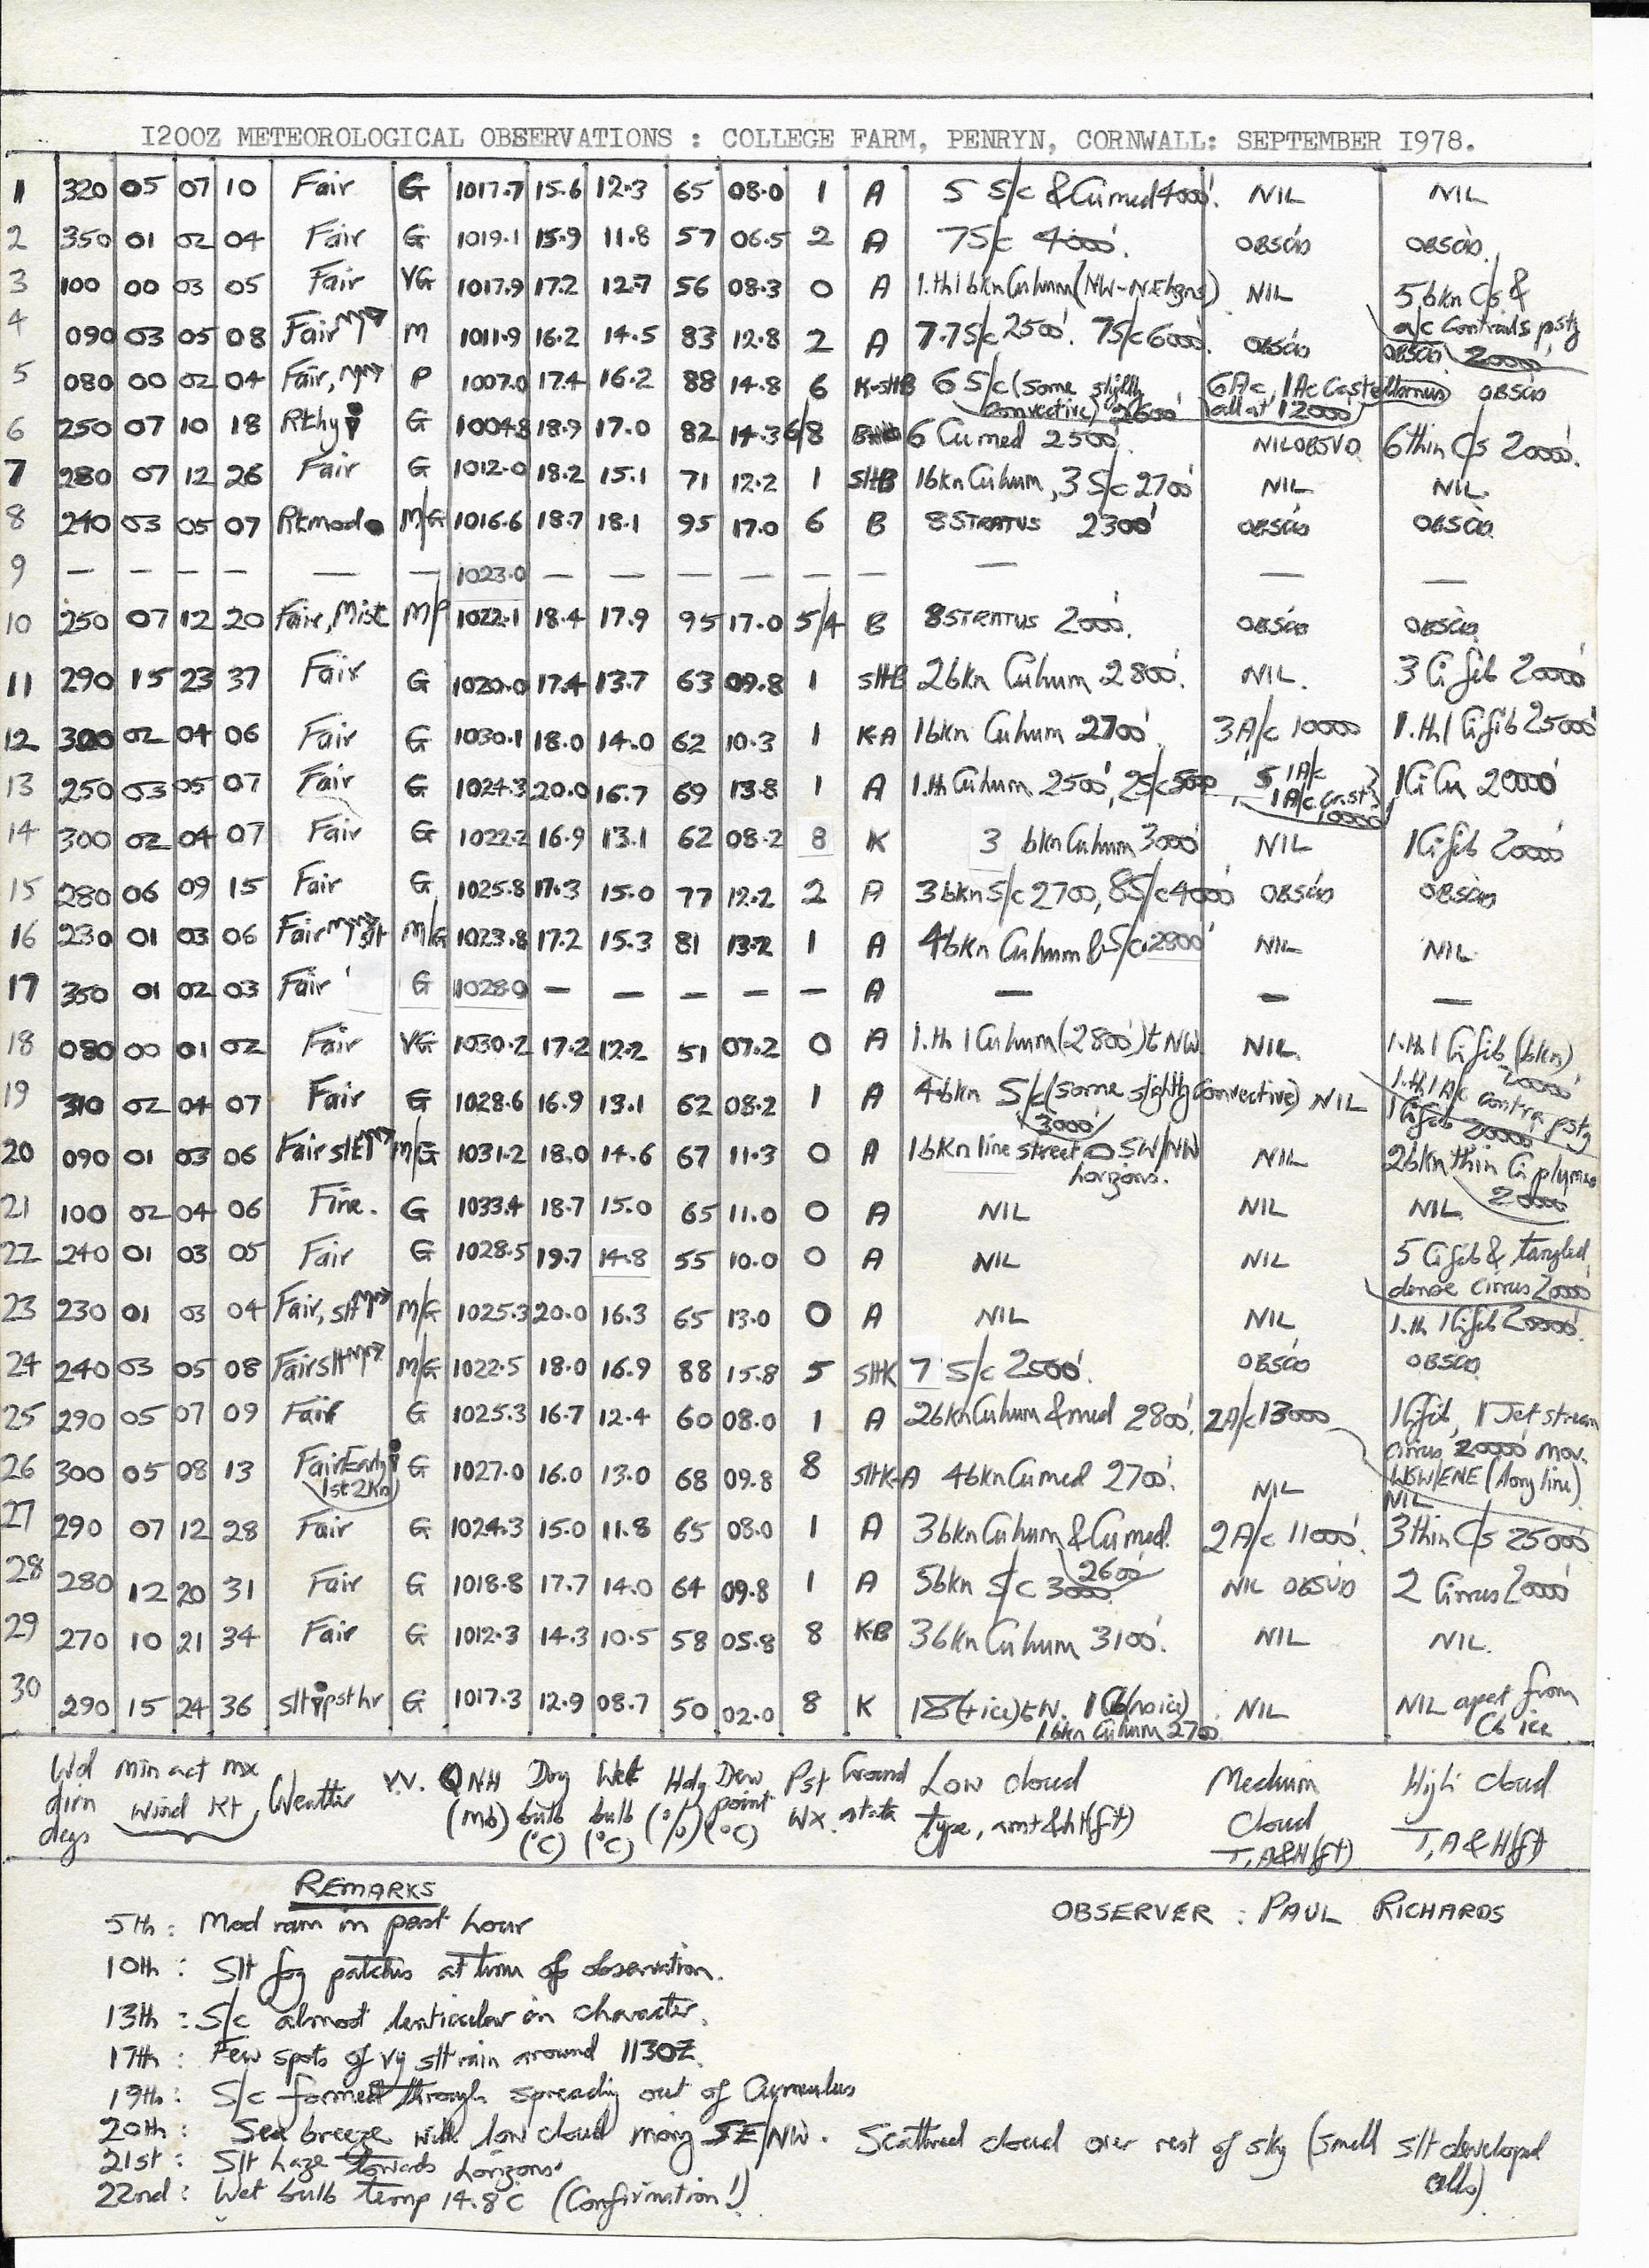 1200Z METEOROLOGICAL OBSERVATIONS : COLLEGE FARM, PENRYN, CORNWALL: SEPTEMBER 1978.
1 320 05 07 10 Fair G 1017.7 15.6 12.3 65 08.0 1 A 5 S/c & Cu med 4000'. NIL NIL
2 350 01 02 04 Fair G 1019.1 15.9 11.8 57 06.5 2 A 7 S/c 4000'. OBSCD OBSCD.
3 100 00 03 05 Fair VG 1017.9 17.2 12.7 56 08.3 0 A 1.th 1 bkn Cu hum (NW-NE hzns) NIL 5 bkn C/s &
a/c Contrails pstg 20000'
4 090 03 05 08 Fair M 1011.9 16.2 14.5 83 12.8 2 A 7.7 S/c 2500'. 7 S/c 6000'. OBSCD OBSCD
5 080 00 02 04 Fair, P 1007.0 17.4 16.2 88 14.8 6 K-sltB 6 S/c (some slightly 6 A/c, 1 Ac Castellanus OBSCD
convective) 2600' all at 12000'
6 250 07 10 18 G 1004.8 18.9 17.0 82 14.3 6/8 6 Cu med 2500'. NIL OBSVD 6 thin C/s 20000'.
7 280 07 12 26 Fair G 1012.0 18.2 15.1 71 12.2 1 sltB 1 bkn Cu hum, 3 S/c 2700' NIL NIL.
8 240 03 05 07 M/G 1016.6 18.7 18.1 95 17.0 6 B 8 STRATUS 2300' OBSCD OBSCD
9 — — — — — — 1023.0 — — — — — — — — —
10 250 07 12 20 Fair, Mist M/P 1022.1 18.4 17.9 95 17.0 5/4 B 8 STRATUS 2000'. OBSCD OBSCD
11 290 15 23 37 Fair G 1020.0 17.4 13.7 63 09.8 1 sltB 2 bkn Cu hum 2800'. NIL. 3 Ci fib 20000'
12 300 02 04 06 Fair G 1030.1 18.0 14.0 62 10.3 1 K-A 1 bkn Cu hum 2700'. 3 A/c 10000' 1.th 1 Ci fib 25000'
13 250 03 05 07 Fair G 1024.3 20.0 16.7 69 13.8 1 A 1.th Cu hum 2500', 2 S/c 5000' 5 1 A/c 1 Ci Cu 20000'
1 A/c Cast 10000'
14 300 02 04 07 Fair G 1022.2 16.9 13.1 62 08.2 8 K 3 bkn Cu hum 3000' NIL 1 Ci fib 20000'
15 280 06 09 15 Fair G 1025.8 17.3 15.0 77 12.2 2 A 3 bkn S/c 2700, 8 S/c 4000' OBSCD OBSCD
16 230 01 03 06 Fair slt M/G 1023.8 17.2 15.3 81 13.2 1 A 4 bkn Cu hum & S/c 2800' NIL NIL.
17 350 01 02 03 Fair G 1028.0 — — — — — A — — —
18 080 00 01 02 Fair VG 1030.2 17.2 12.2 51 07.2 0 A 1.th 1 Cu hum (2800') t NW NIL. 1.th 1 Ci fib (bkn)
20000'
19 310 02 04 07 Fair G 1028.6 16.9 13.1 62 08.2 1 A 4 bkn S/c (some slightly convective) NIL 1.th 1 A/c contra pstg
3000' 1 Ci fib 20000'
20 090 01 03 06 Fair slt M/G 1031.2 18.0 14.6 67 11.3 0 A 1 bkn line street SW/NW NIL 2 bkn thin Ci plumes
horizons. 20000'
21 100 02 04 06 Fine. G 1033.4 18.7 15.0 65 11.0 0 A NIL NIL NIL
22 240 01 03 05 Fair G 1028.5 19.7 14.8 55 10.0 0 A NIL NIL 5 Ci fib & tangled
dense cirrus 20000'
23 230 01 03 04 Fair, slt M/G 1025.3 20.0 16.3 65 13.0 0 A NIL NIL 1.th 1 Ci fib 20000'.
24 240 03 05 08 Fair slt M/G 1022.5 18.0 16.9 88 15.8 5 sltK 7 S/c 2500'. OBSCD OBSCD
25 290 05 07 09 Fair G 1025.3 16.7 12.4 60 08.0 1 A 2 bkn Cu hum & med 2800'. 2 A/c 13000 1 Ci fib, 1 Jet stream
cirrus 20000' mov.
WSW/ENE (long line)
26 300 05 08 13 Fair G 1027.0 16.0 13.0 68 09.8 8 sltK-A 4 bkn Cu med 2700'. NIL NIL
27 290 07 12 28 Fair G 1024.3 15.0 11.8 65 08.0 1 A 3 bkn Cu hum & Cu med. 2600' 2 A/c 11000'. 3 thin C/s 25000'
28 280 12 20 31 Fair G 1018.8 17.7 14.0 64 09.8 1 A 5 bkn S/c 3000' NIL OBSVD 2 Cirrus 20000'
29 270 10 21 34 Fair G 1012.3 14.3 10.5 58 05.8 8 K-B 3 bkn Cu hum 3100'. NIL NIL.
30 290 15 24 36 slt pst hr G 1017.3 12.9 08.7 50 02.0 8 K (+ice) t N. 1 Cb (no ice) NIL NIL apart from
1 bkn Cu hum 2700 Cb ice
Wd dirn degs min act mx Wind Kt Weather VV. QNH (mb) Dry bulb (°C) Wet bulb (°C) Hdy (%) Dew point (°C) Pst Wx. Ground state Low cloud type, amt & ht (ft) Medium Cloud T, A & H (ft) High cloud T, A & H (ft)
REMARKS
OBSERVER : PAUL RICHARDS
5th: Mod rain in past hour
10th: Slt fog patches at time of observation.
13th: S/c almost lenticular in character.
17th: Few spots of vy slt rain around 1130Z.
19th: S/c formed through spreading out of Cumulus
20th: Sea breeze with low cloud moving SE/NW. Scattered cloud over rest of sky (small slt developed
cells)
21st: Slt haze towards horizons.
22nd: Wet bulb temp 14.8 C (Confirmation!)